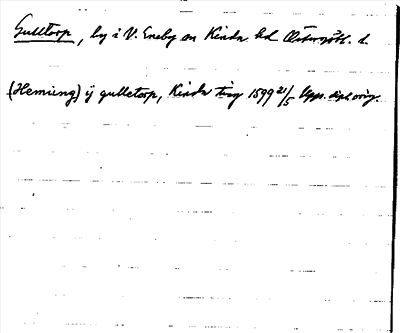 Gulltorp, by i V. Eneby sn Kinda hd Östergötl. l.
(Hemming) ij gulletorp, Kinda ting 1599 21/5 Upps. dipl. orig.